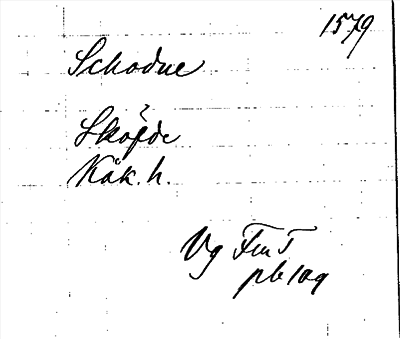 1579
Schodue
Skövde
Kåk. h.
Vg FmT
pb 109